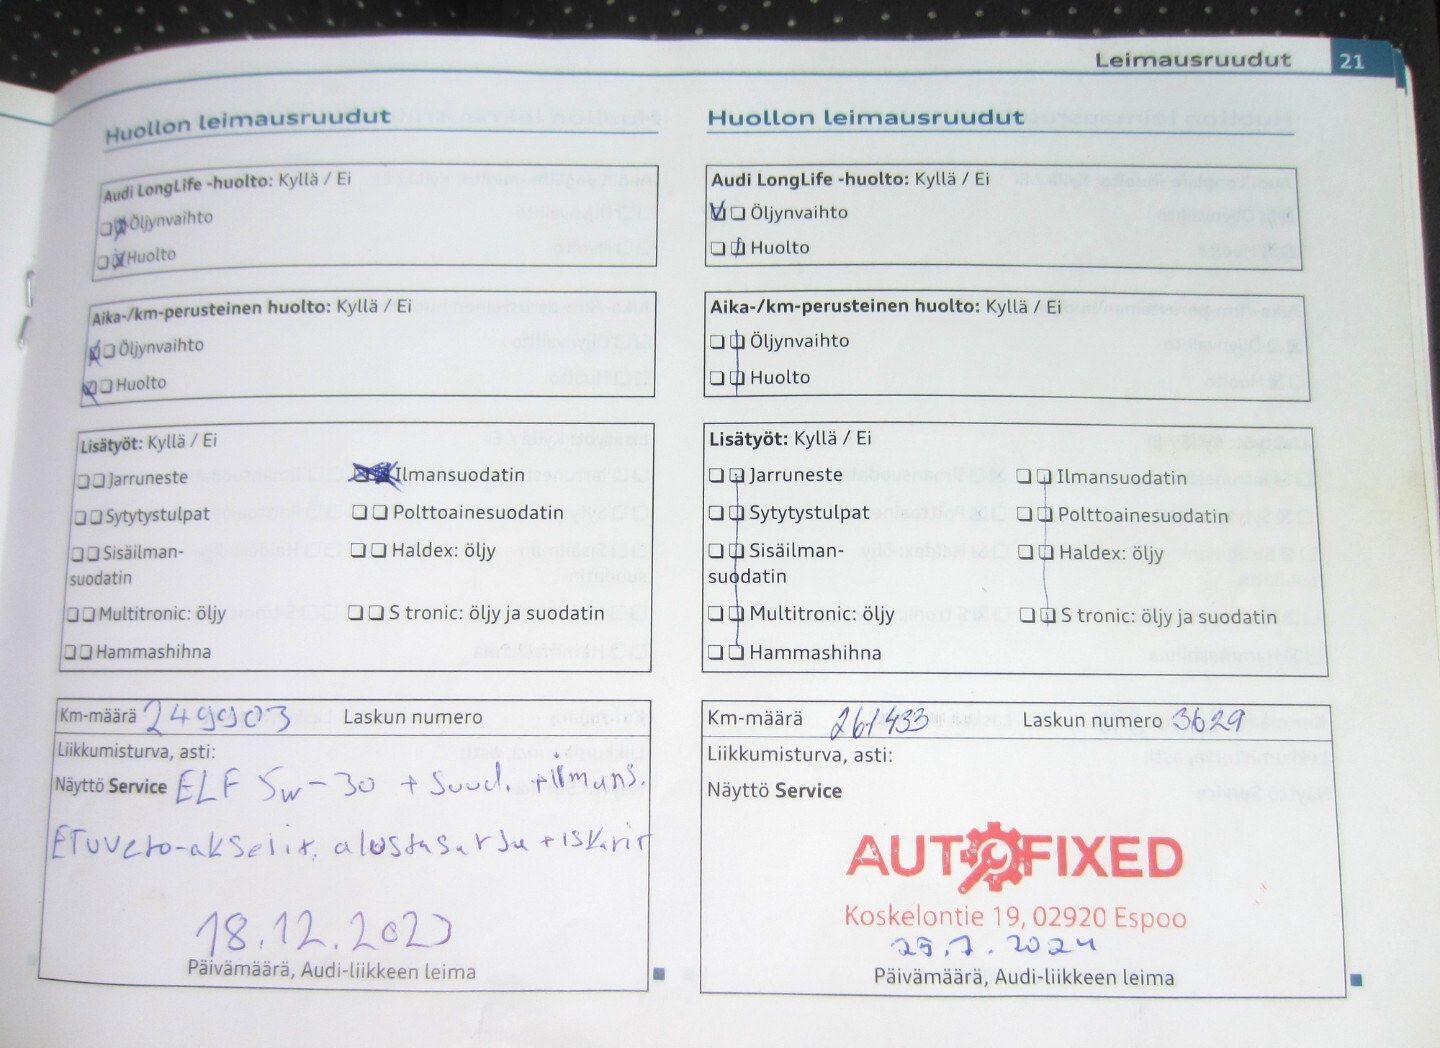 Leimausruudut 21
Huollon leimausruudut
Audi LongLife -huolto: Kyllä / Ei
Öljynvaihto
Huolto
Aika-/km-perusteinen huolto: Kyllä / Ei
Öljynvaihto
Huolto
Lisätyöt: Kyllä / Ei
Jarruneste Ilmansuodatin
Sytytystulpat Polttoainesuodatin
Sisäilman- Haldex: öljy
suodatin
Multitronic: öljy S tronic: öljy ja suodatin
Hammashihna
Km-määrä 249903 Laskun numero
Liikkumisturva, asti:
Näyttö Service ELF 5w-30 + suod. + ilmans.
Etuveto-akselit, alustasarja + iskarit
18.12.2023
Päivämäärä, Audi-liikkeen leima
Huollon leimausruudut
Audi LongLife -huolto: Kyllä / Ei
Öljynvaihto
Huolto
Aika-/km-perusteinen huolto: Kyllä / Ei
Öljynvaihto
Huolto
Lisätyöt: Kyllä / Ei
Jarruneste Ilmansuodatin
Sytytystulpat Polttoainesuodatin
Sisäilman- Haldex: öljy
suodatin
Multitronic: öljy S tronic: öljy ja suodatin
Hammashihna
Km-määrä 261433 Laskun numero 3629
Liikkumisturva, asti:
Näyttö Service
AUTOFIXED
Koskelontie 19, 02920 Espoo
25.7.2024
Päivämäärä, Audi-liikkeen leima